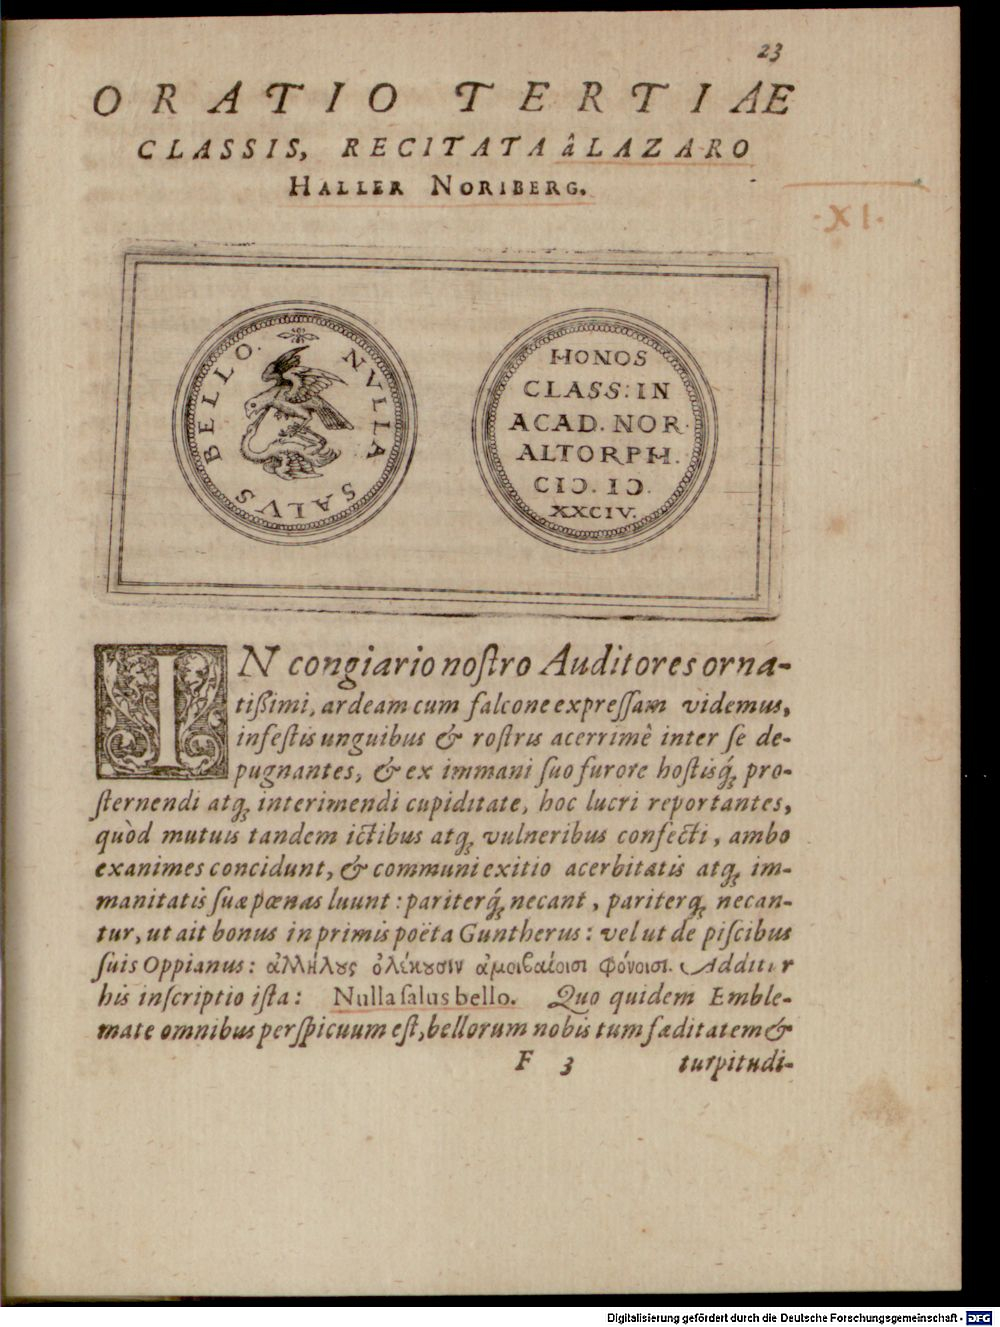 23
ORATIO TERTIAE
CLASSIS, RECITATA â LAZARO
HALLER NORIBERG.
·IX·
NVLLA SALVS BELLO.
HONOS
CLASS: IN
ACAD. NOR.
ALTORPH.
CIƆ. IƆ.
XXCIV.
IN congiario nostro Auditores orna-
tißimi, ardeam cum falcone expreſſam videmus,
infeſtis unguibus & roſtris acerrimè inter ſe de-
pugnantes, & ex immani ſuo furore hoſtisq́; pro-
ſternendi atq; interimendi cupiditate, hoc lucri reportantes,
quòd mutuis tandem ictibus atq; vulneribus confecti, ambo
exanimes concidunt, & communi exitio acerbitatis atq; im-
manitatis ſuæ pœnas luunt: pariterq́; necant, pariterq; necan-
tur, ut ait bonus in primis poëta Guntherus: vel ut de piſcibus
ſuis Oppianus: ἀλλήλους ὀλέκουσιν ἀμοιβαίοισι φόνοισι. Additur
his inſcriptio iſta: Nulla ſalus bello. Quo quidem Emble-
mate omnibus perſpicuum eſt, bellorum nobis tum fæditatem &
F 3 turpitudi-
Digitalisierung gefördert durch die Deutsche Forschungsgemeinschaft - DFG